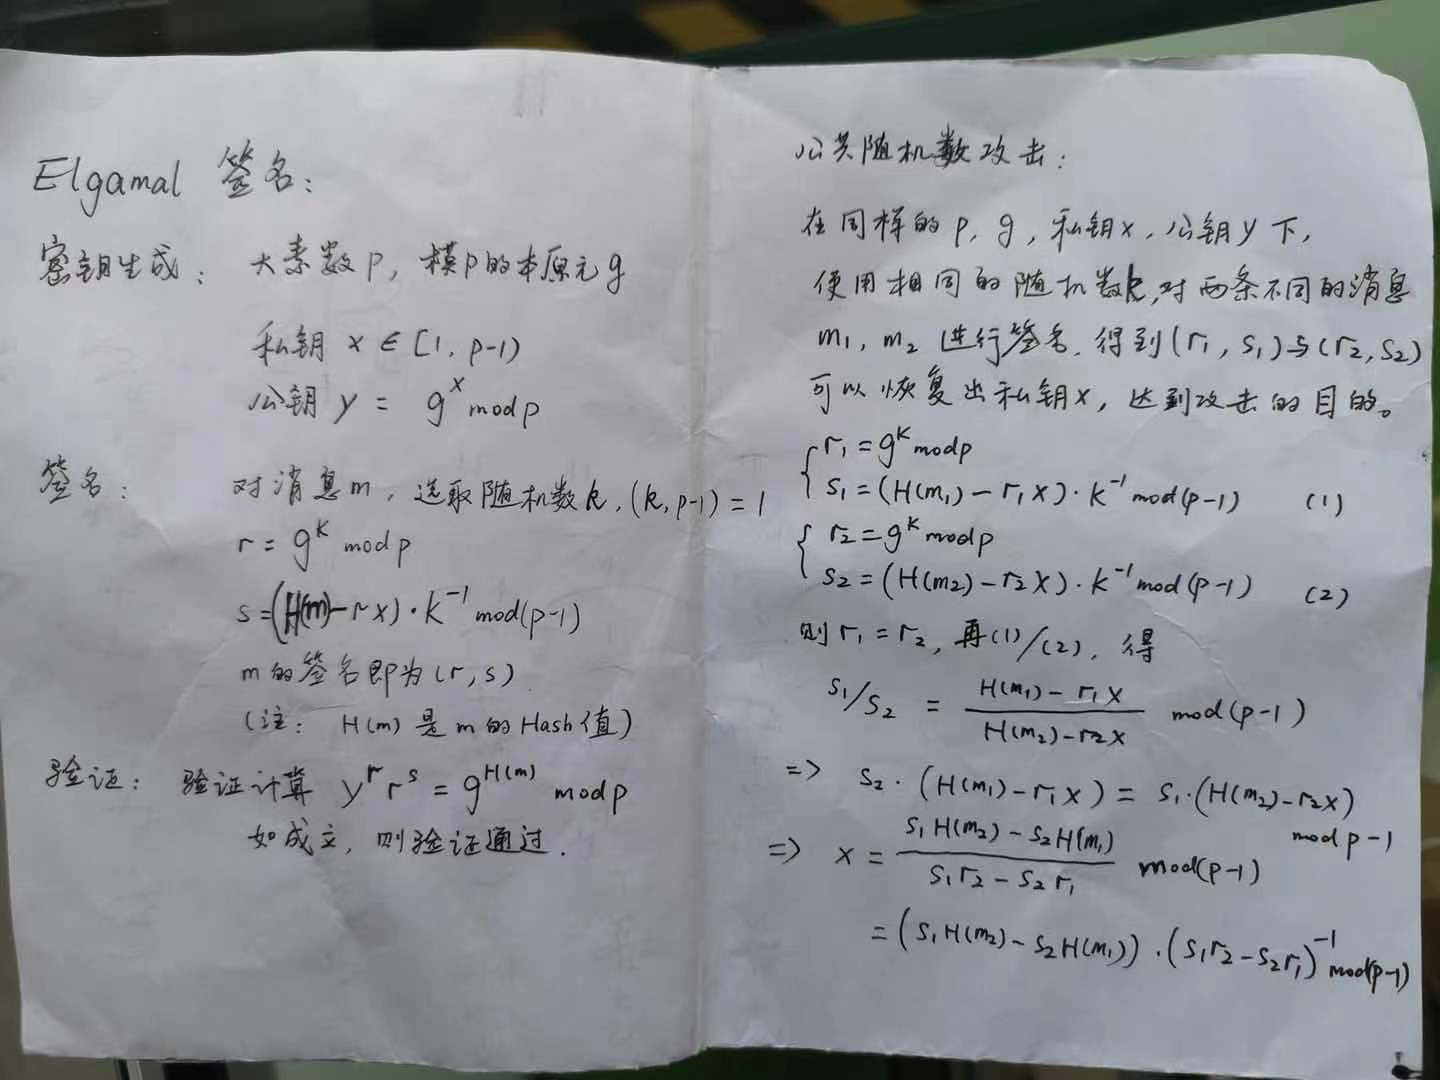 Elgamal 签名：
密钥生成： 大素数p, 模p的本原元g
私钥 x ∈ [1, p-1)
公钥 y = g^x mod p
签名： 对消息m, 选取随机数k, (k, p-1) = 1
r = g^k mod p
s = (H(m) - rx)·k^-1 mod(p-1)
m的签名即为(r, s).
(注： H(m) 是m的Hash值)
验证： 验证计算 y^r r^s = g^H(m) mod p
如成立, 则验证通过.
公共随机数攻击：
在同样的p, g, 私钥x, 公钥y下,
使用相同的随机数k,对两条不同的消息
m1, m2 进行签名, 得到(r1, s1)与(r2, s2)
可以恢复出私钥x, 达到攻击的目的。
{ r1 = g^k mod p
s1 = (H(m1) - r1x)·k^-1 mod(p-1) (1)
{ r2 = g^k mod p
s2 = (H(m2) - r2x)·k^-1 mod(p-1) (2)
则 r1 = r2, 再(1)/(2), 得
s1/s2 = (H(m1) - r1x)/(H(m2) - r2x) mod(p-1)
=> s2·(H(m1) - r1x) = s1·(H(m2) - r2x) mod p-1
=> x = (s1H(m2) - s2H(m1))/(s1r2 - s2r1) mod(p-1)
= (s1H(m2) - s2H(m1))·(s1r2 - s2r1)^-1 mod(p-1)